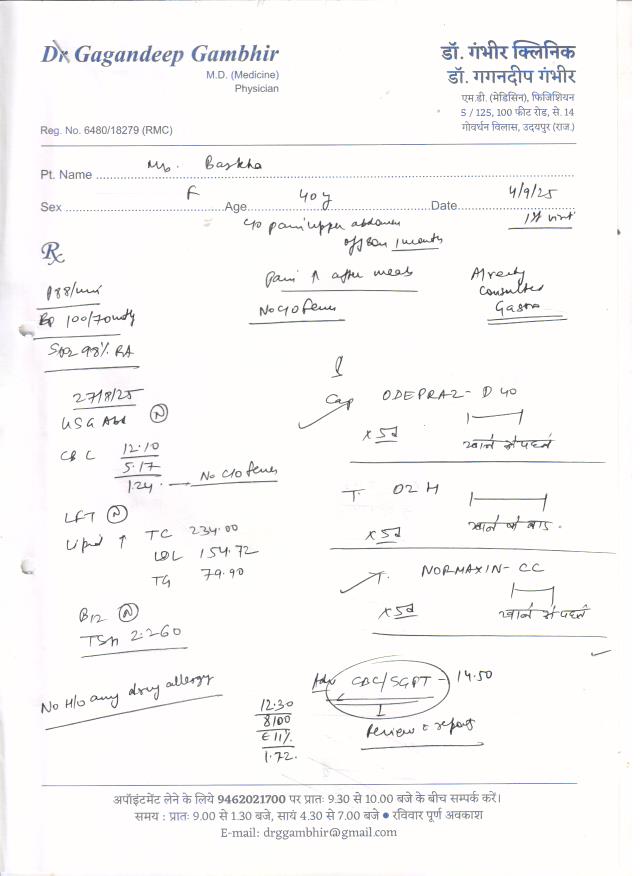 Dr. Gagandeep Gambhir
M.D. (Medicine)
Physician
Reg. No. 6480/18279 (RMC)
डॉ. गंभीर क्लिनिक
डॉ. गगनदीप गंभीर
एम.डी. (मेडिसिन), फिजिशियन
5 / 125, 100 फीट रोड, से. 14
गोवर्धन विलास, उदयपुर (राज.)
Pt. Name Mrs. Barkha
Sex F Age 40y Date 4/9/25
1st visit
c/o pain upper abdomen
off & on 1 month
Rx
Pain ↑ after meals
No c/o fever
Already
Consulted
Gastro
P 88/min
BP 100/70 mmHg
SpO2 98% RA
27/8/25
USG Abd (N)
CBC 12.10
5.17
1.24 — No c/o fever
LFT (N)
Lipid ↑ TC 234.00
LDL 154.72
TG 79.90
B12 (N)
TSH 2.260
No H/o any drug allergy
Cap ODEPRAZ-D 40
x 5d खाने से पहले
T. O2 H
x 5d खाने के बाद.
T. NORMAXIN-CC
x 5d खाने से पहले
Adv CBC/SGPT - 14.50
Review c reports
12.30
8100
E 11%
1.72.
अपॉइंटमेंट लेने के लिये 9462021700 पर प्रातः 9.30 से 10.00 बजे के बीच सम्पर्क करें।
समय : प्रातः 9.00 से 1.30 बजे, सायं 4.30 से 7.00 बजे ● रविवार पूर्ण अवकाश
E-mail: drggambhir@gmail.com